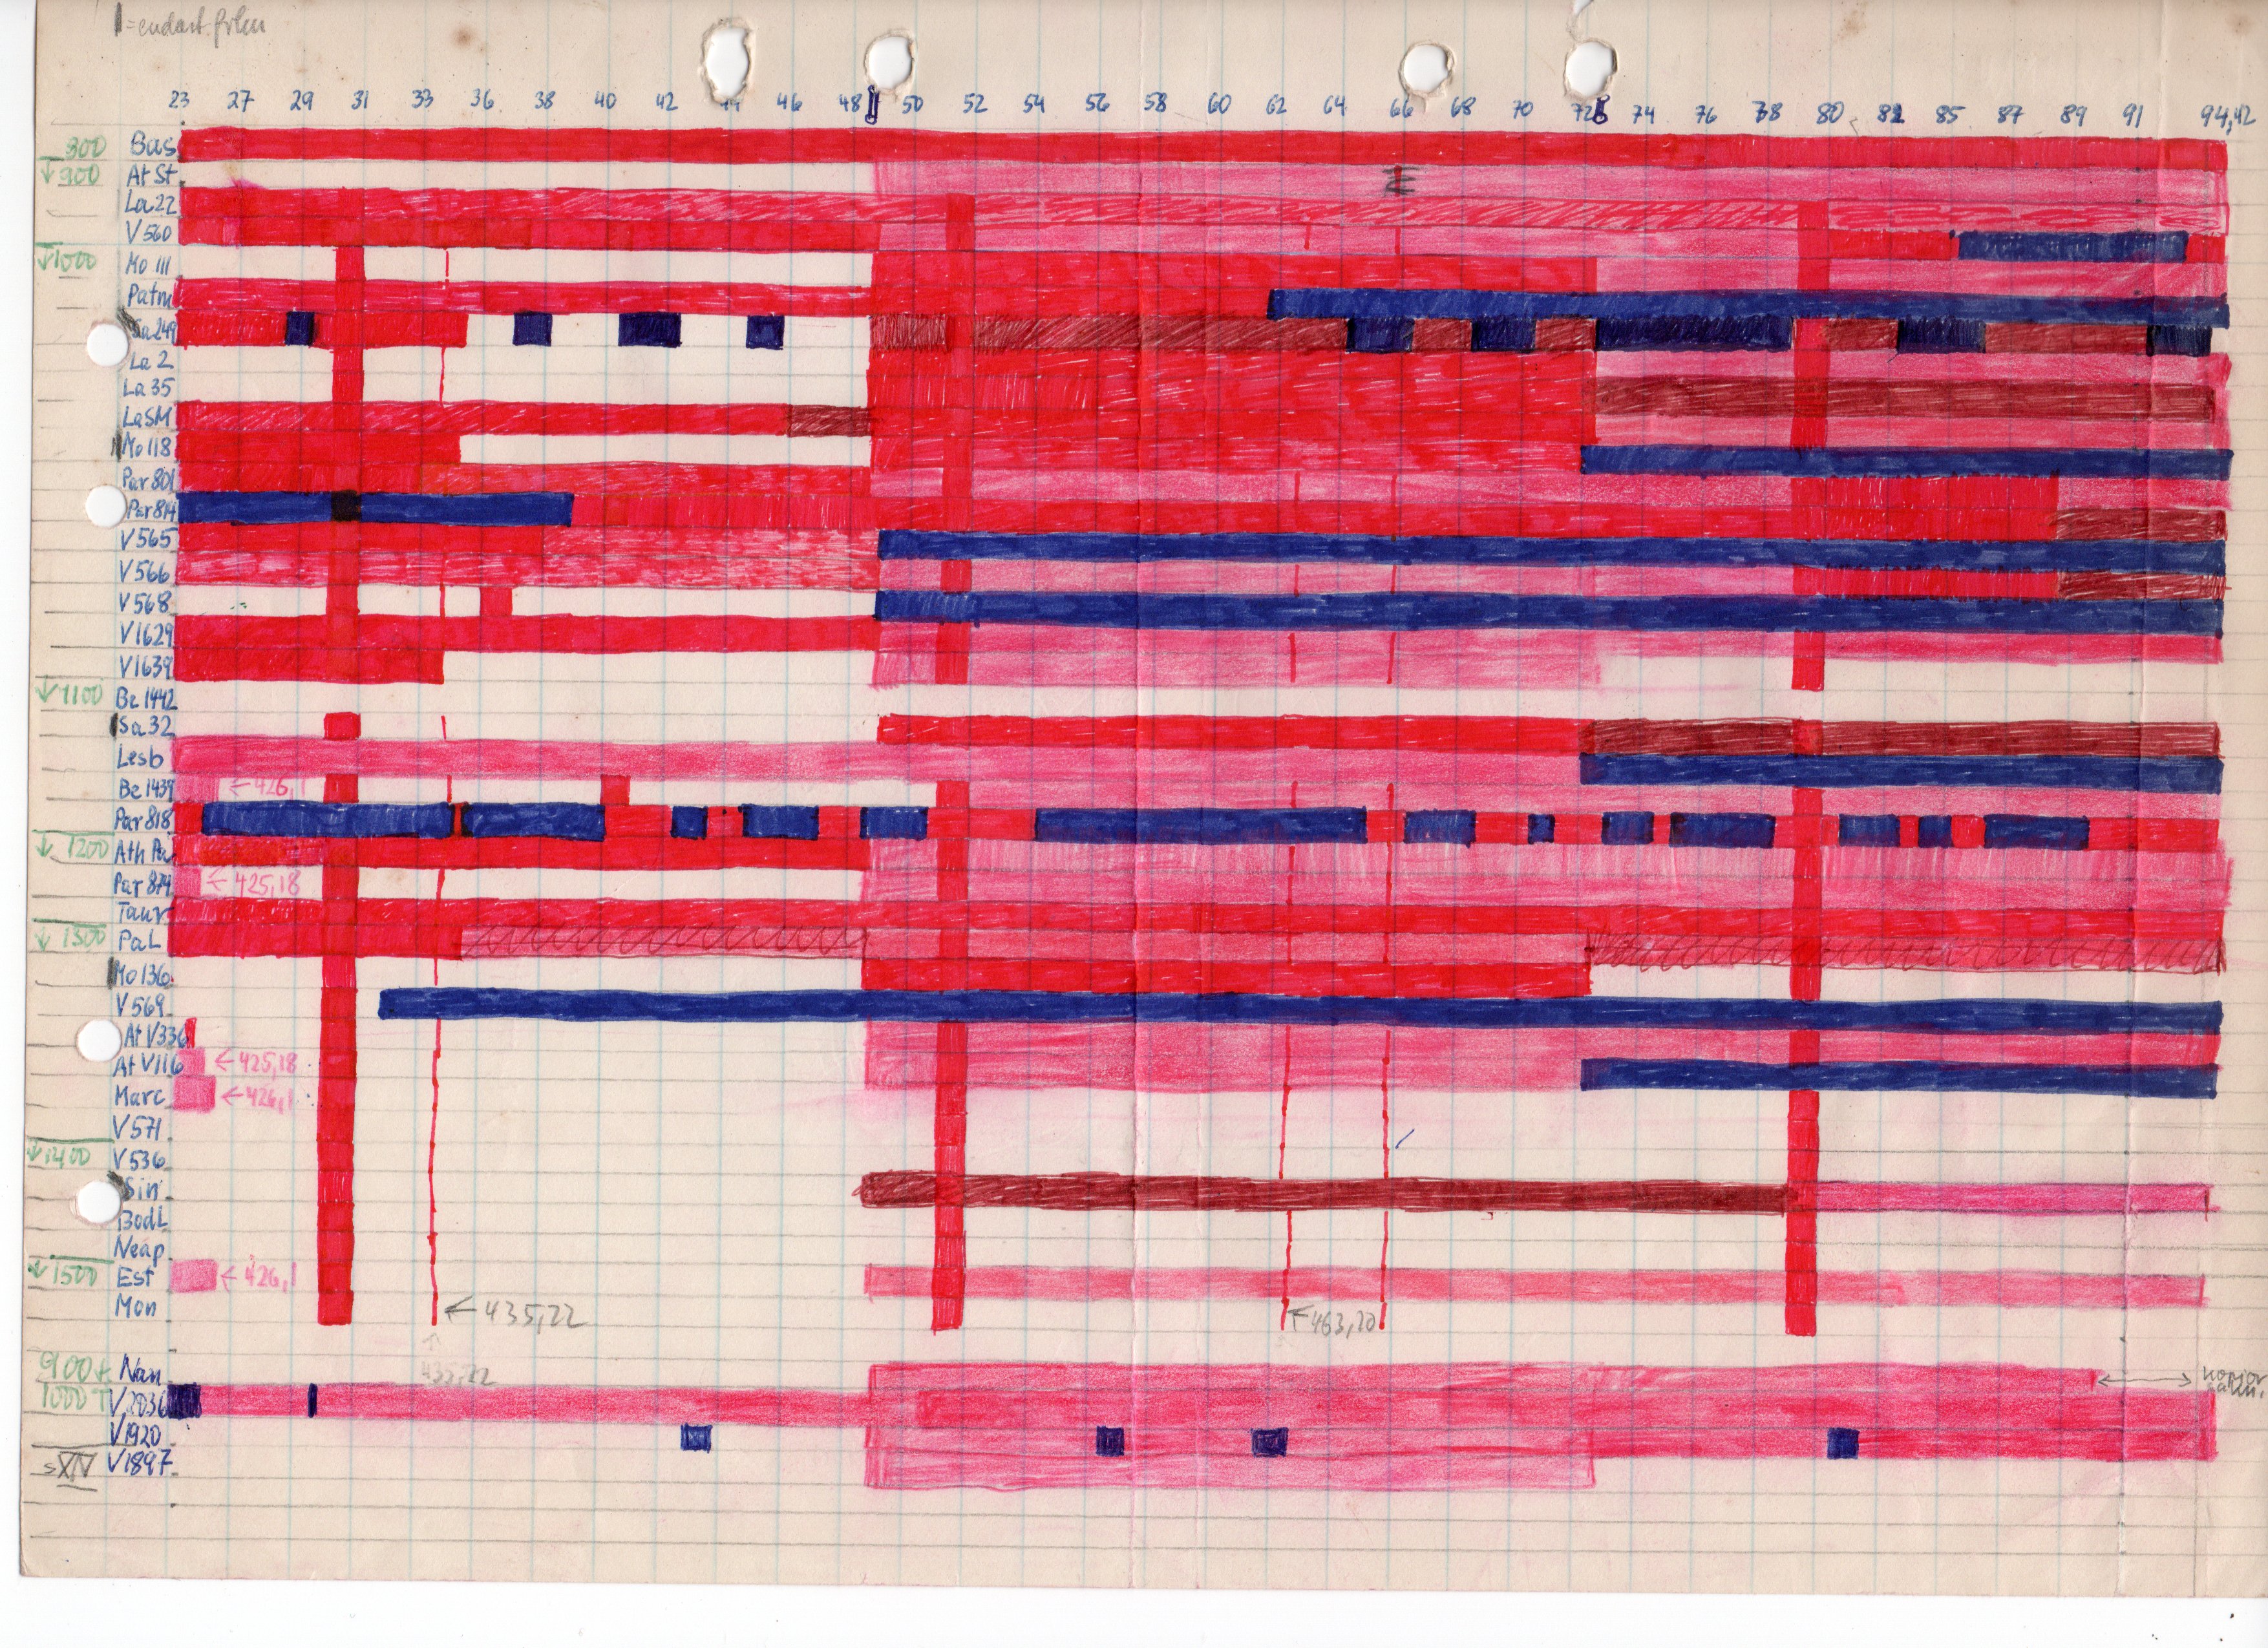 = endast film
23 27 29 31 33 36 38 40 42 44 46 48 50 52 54 56 58 60 62 64 66 68 70 72 74 76 78 80 82 85 87 89 91 94,42
300 Bas
↓900 At St
La 22
V 560
↓1000 Mo 111
Patm
Sa 249
La 2
La 35
La SM
Mo 118
Par 801
Par 814
V 565
V 566
V 568
V 1629
V 1639
↓1100 Be 1442
Sa 32
Lesb
Be 1439 ←426,1
Par 818
↓1200 Ath Pa
Par 874 ←425,18
Taur
↓1300 PaL
Mo 136
V 569
At V336
At V116 ←425,18
Marc ←426,1
V 571
↓1400 V 536
Sin
BodL
Neap
↓1500 Est ←426,1
Mon ←435,22 ←463,20
900 Nan 435,22
1000 V2036
V1920
sXIV V1897